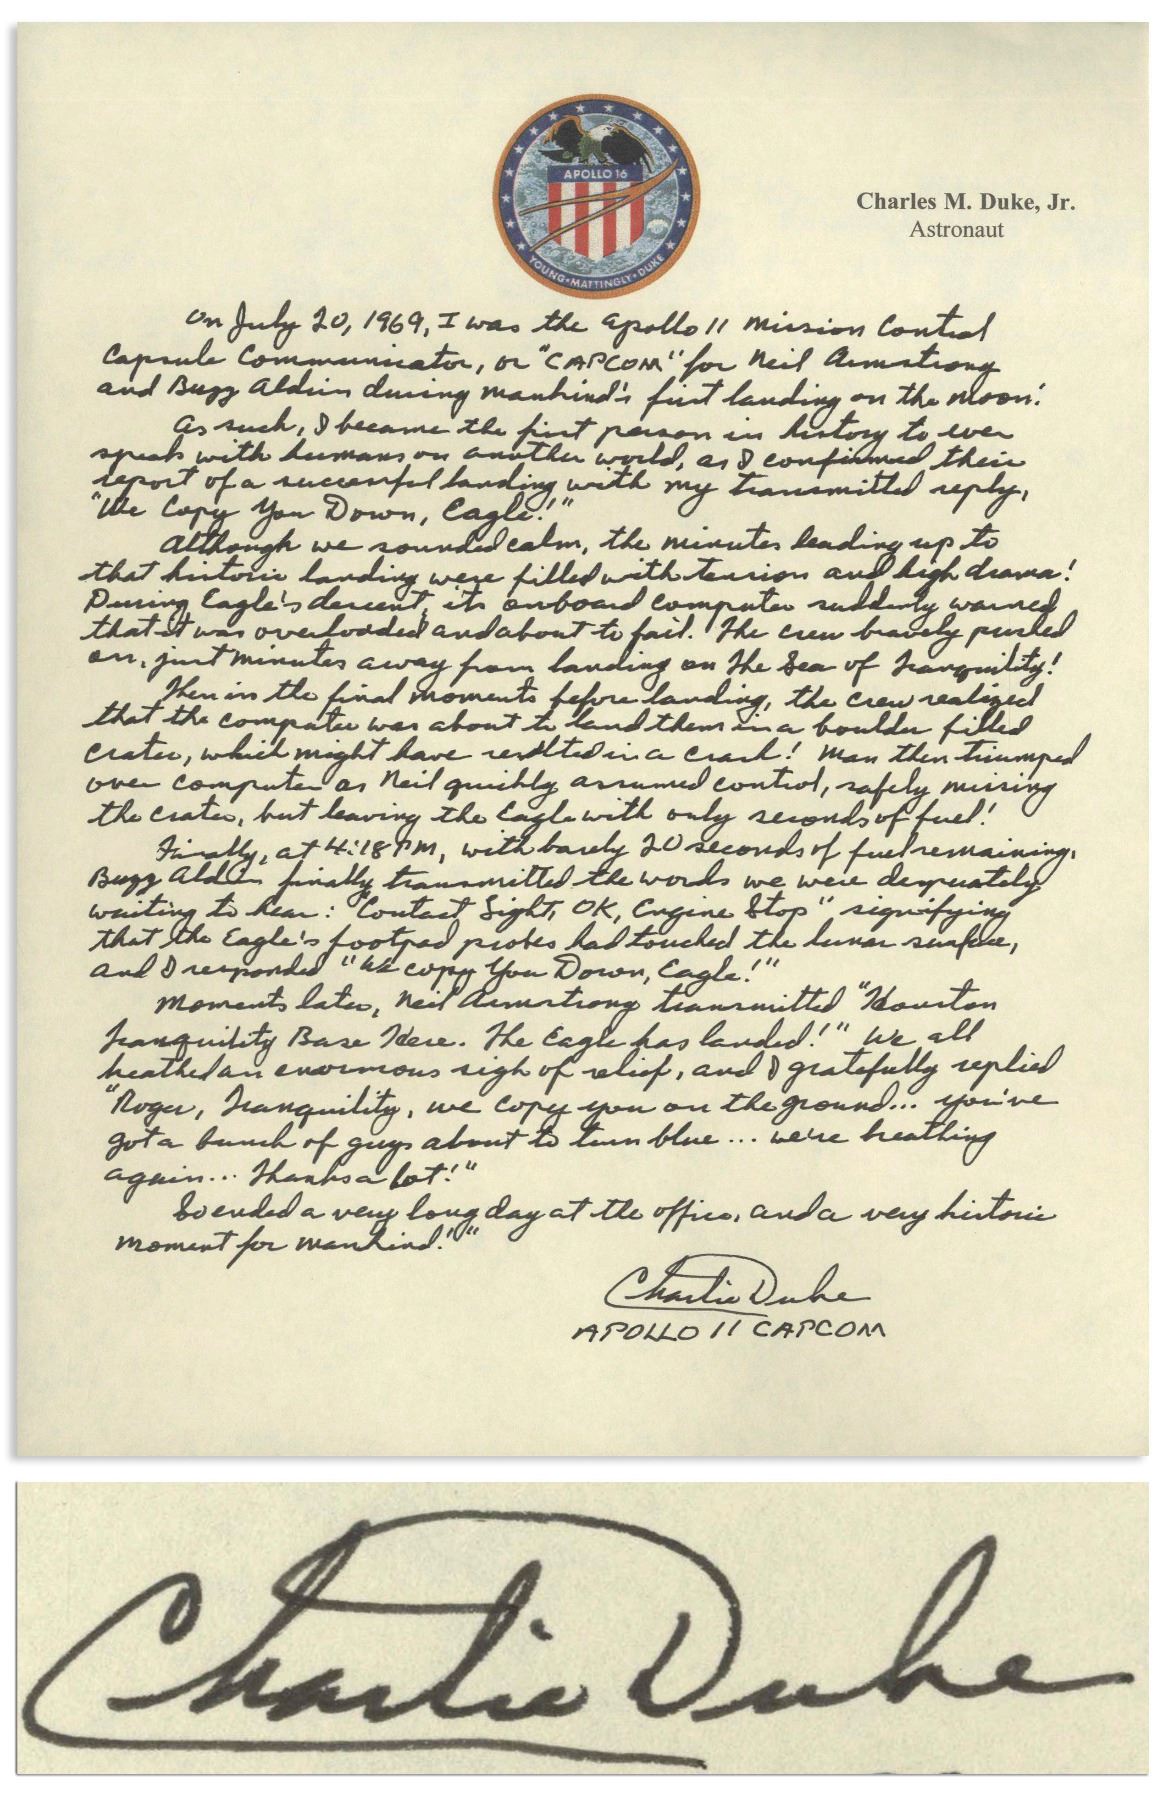 APOLLO 16
YOUNG • MATTINGLY • DUKE
Charles M. Duke, Jr.
Astronaut
On July 20, 1969, I was the Apollo 11 Mission Control
Capsule Communicator, or "CAPCOM" for Neil Armstrong
and Buzz Aldrin during mankind's first landing on the moon!
As such, I became the first person in history to ever
speak with humans on another world, as I confirmed their
report of a successful landing with my transmitted reply,
"We Copy You Down, Eagle!"
Although we sounded calm, the minutes leading up to
that historic landing were filled with tension and high drama!
During Eagle's descent, its onboard computer suddenly warned
that it was overloaded and about to fail. The crew bravely pushed
on, just minutes away from landing on the Sea of Tranquility!
Then in the final moments before landing, the crew realized
that the computer was about to land them in a boulder filled
crater, which might have resulted in a crash! Man then triumped
over computer as Neil quickly assumed control, safely missing
the crater, but leaving the Eagle with only seconds of fuel!
Finally, at 4:18 PM, with barely 20 seconds of fuel remaining,
Buzz Aldrin finally transmitted the words we were desperately
waiting to hear: "Contact Light, OK, Engine Stop" signifying
that the Eagle's footpad probes had touched the lunar surface,
and I responded "We copy You Down, Eagle!"
Moments later, Neil Armstrong transmitted "Houston
Tranquility Base Here. The Eagle has landed!" We all
breathed an enormous sigh of relief, and I gratefully replied
"Roger, Tranquility, we copy you on the ground... you've
got a bunch of guys about to turn blue... we're breathing
again... Thanks a lot!"
So ended a very long day at the office, and a very historic
moment for mankind!"
Charlie Duke
APOLLO 11 CAPCOM
Charlie Duke